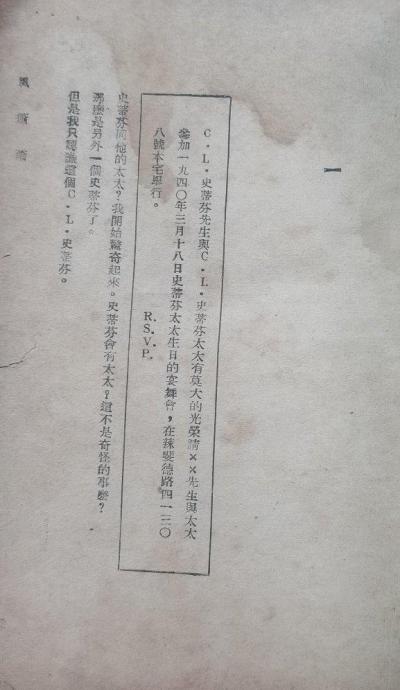 一
C·L·史蒂芬先生與C·L·史蒂芬太太有莫大的光榮請××先生與太太
參加一九四〇年三月十八日史蒂芬太太生日的宴舞會，在辣斐德路四一三〇
八號本宅舉行。
R.S.V.P.
史蒂芬同他的太太？我開始驚奇起來。史蒂芬會有太太？這不是奇怪的事麼？
那麼是另外一個史蒂芬了。
但是我只認識這個C·L·史蒂芬。
風蕭蕭